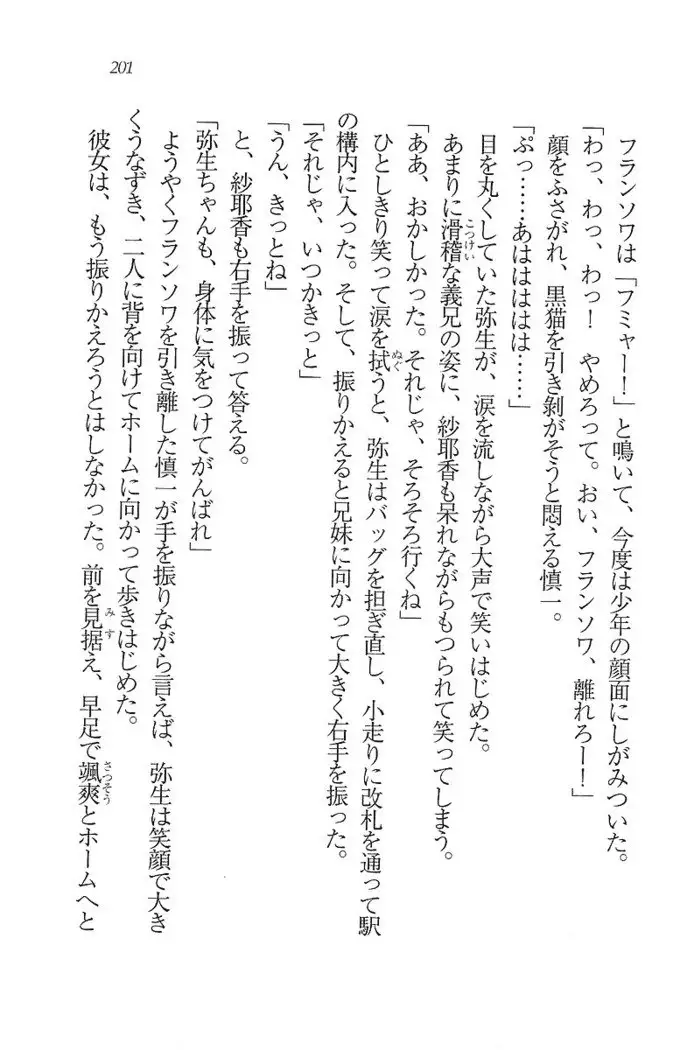 201
フランソワは「フミャー！」と鳴いて、今度は少年の顔面にしがみついた。
「わっ、わっ、わっ！　やめろって。おい、フランソワ、離れろー！」
顔をふさがれ、黒猫を引き剝がそうと悶える慎一。
「ぷっ……あはははは……」
目を丸くしていた弥生が、涙を流しながら大声で笑いはじめた。
あまりに滑稽な義兄の姿に、紗耶香も呆れながらもつられて笑ってしまう。
「ああ、おかしかった。それじゃ、そろそろ行くね」
ひとしきり笑って涙を拭うと、弥生はバッグを担ぎ直し、小走りに改札を通って駅
の構内に入った。そして、振りかえると兄妹に向かって大きく右手を振った。
「それじゃ、いつかきっと」
「うん、きっとね」
と、紗耶香も右手を振って答える。
「弥生ちゃんも、身体に気をつけてがんばれ」
ようやくフランソワを引き離した慎一が手を振りながら言えば、弥生は笑顔で大き
くうなずき、二人に背を向けてホームに向かって歩きはじめた。
彼女は、もう振りかえろうとはしなかった。前を見据え、早足で颯爽とホームへと